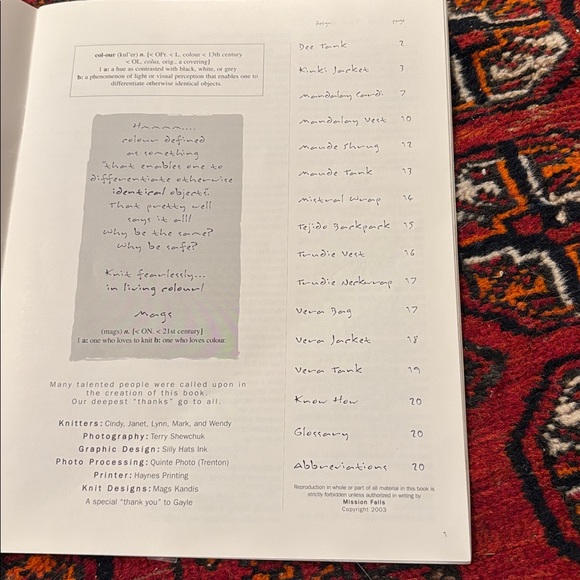 col·our (kul'er) n. [< OFr. < L. colour < 13th century
< OL. colus, orig., a covering]
1 a: a hue as contrasted with black, white, or grey
b: a phenomenon of light or visual perception that enables one to
differentiate otherwise identical objects.
Hmmmm....
colour defined
as something
"that enables one to
differentiate otherwise
identical objects".
That pretty well
says it all!
Why be the same?
Why be safe?
Knit fearlessly...
in living colour!
mags
(mags) n. [< ON. < 21st century]
1 a: one who loves to knit b: one who loves colour.
Many talented people were called upon in
the creation of this book.
Our deepest "thanks" go to all.
Knitters: Cindy, Janet, Lynn, Mark, and Wendy
Photography: Terry Shewchuk
Graphic Design: Silly Hats Ink
Photo Processing: Quinte Photo (Trenton)
Printer: Haynes Printing
Knit Designs: Mags Kandis
A special "thank you" to Gayle
design page
Dee Tank 2
Kinki Jacket 3
Mandalay Cardi 7
Mandalay Vest 10
Maude Shrug 12
Maude Tank 13
Mistral Wrap 14
Tejido Backpack 15
Trudie Vest 16
Trudie Neckwrap 17
Vera Bag 17
Vera Jacket 18
Vera Tank 19
Know How 20
Glossary 20
Abbreviations 20
Reproduction in whole or part of all material in this book is
strictly forbidden unless authorized in writing by
Mission Falls
Copyright 2003
1